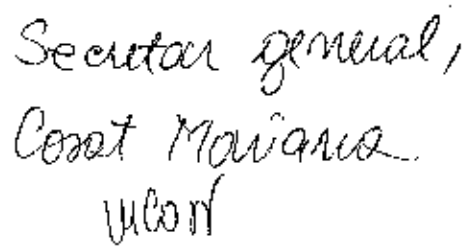 Secretar general,
Cosat Mariana